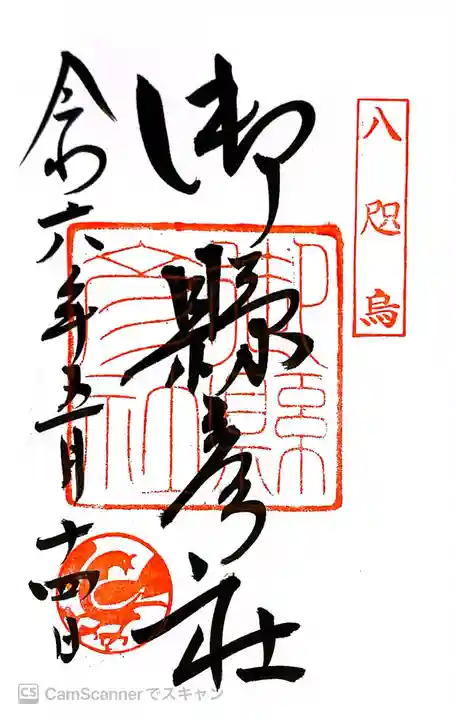 八咫烏
御縣彦社
御縣
彦社
令和六年五月十四日
CS CamScannerでスキャン